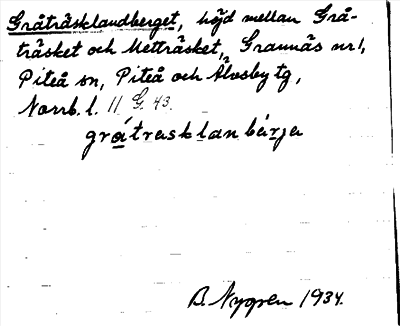 Gråträsklandberget, höjd mellan Grå-
träsket och Metträsket, Grannäs nr 1,
Piteå sn, Piteå och Älvsby tg,
Norrb. l. 11 G. 43.
gråtrasklanbárja
B. Nygren 1934.